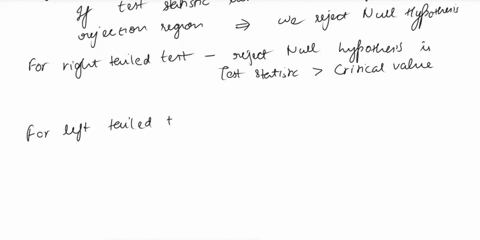 If test statistic
rejection region ⇒ we reject Null Hypothesis
For right tailed test - reject Null hypothesis is
Test statistic > Critical value
For left tailed t